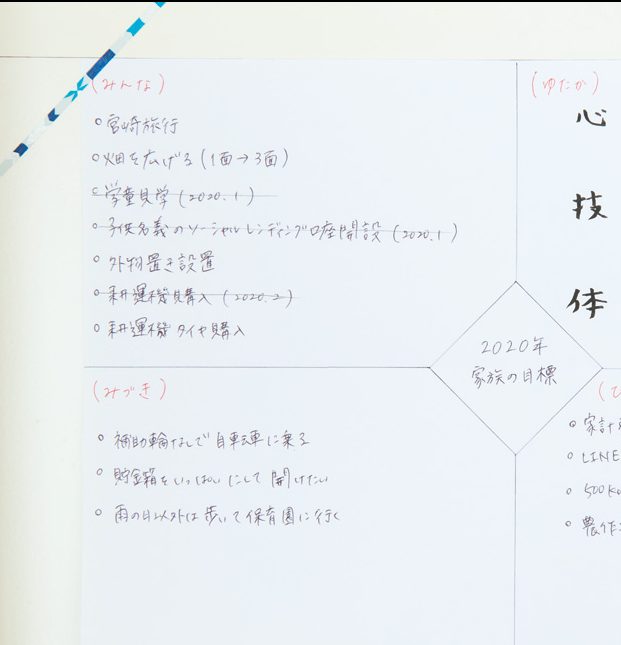 (みんな)
○宮崎旅行
○畑を広げる(1面→3面)
○学童見学(2020.1)
○子供名義のソーシャルレンディング口座開設(2020.1)
○外物置き設置
○耕運機購入(2020.2)
○耕運機タイヤ購入
(ゆたか)
心
技
体
2020年
家族の目標
(みづき)
○補助輪なしで自転車に乗る
○貯金箱をいっぱいにして開けたい
○雨の日以外は歩いて保育園に行く
○家計
○LINE
○500K
○農作